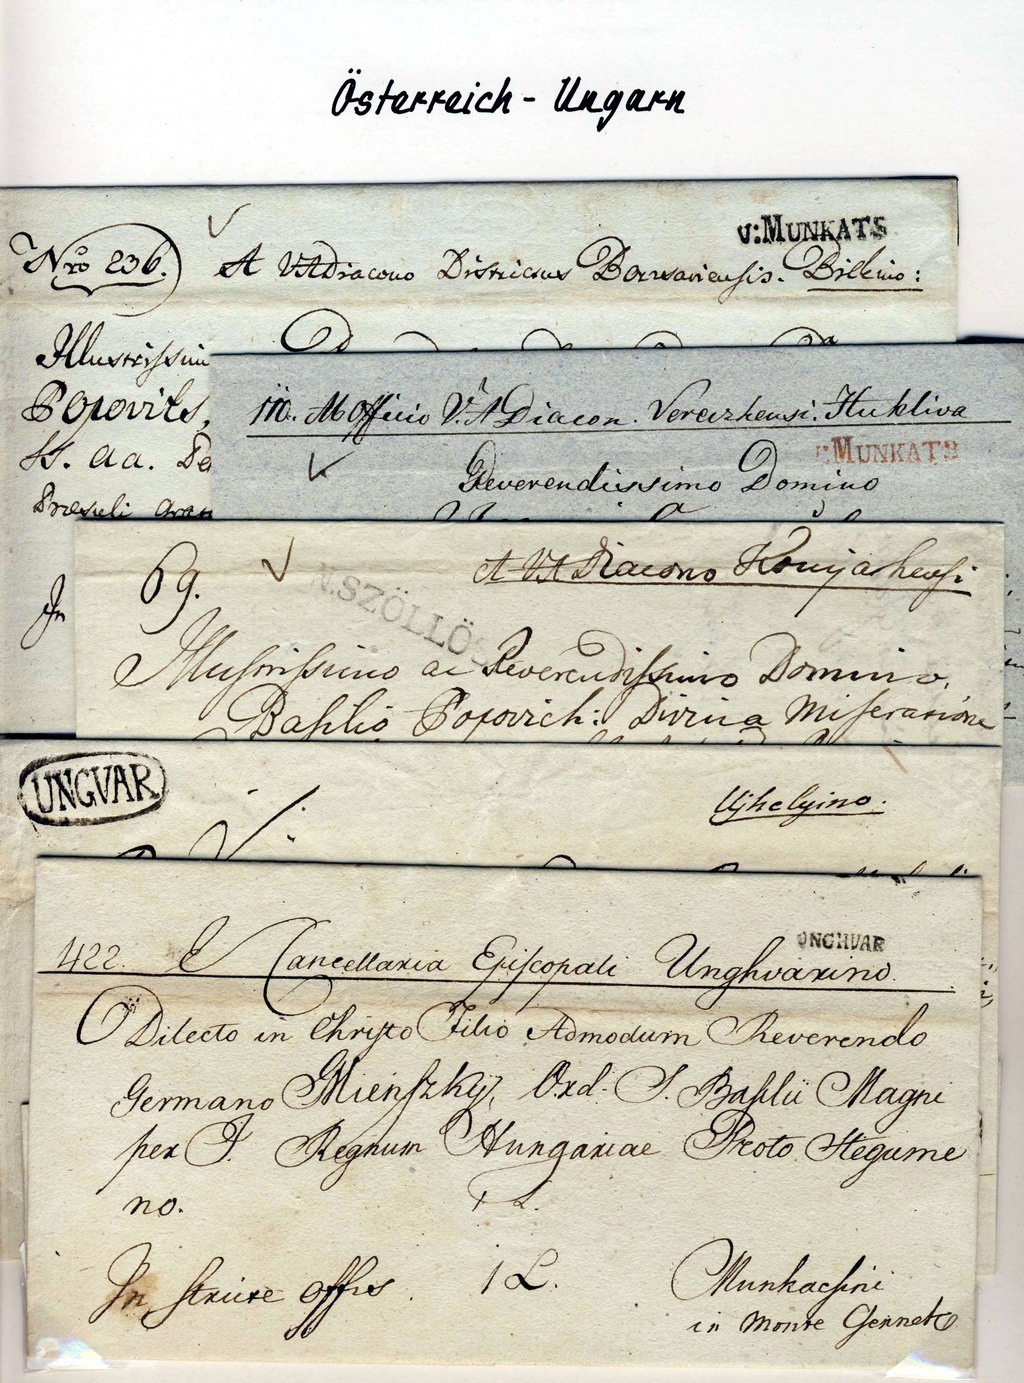 Österreich - Ungarn
v:MUNKATS
Nro 236. A VADiacono Districtus Borsaviensis. Bilkino:
Illustrissim
Popovits,
SS. aa. De
Præsuli Gran
In
Ab Officio V. A Diacon. Vereczkensi. Hukliva
v:MUNKATS
Reverendissimo Domino
69. A VA Diacono Konyashensi
N.SZÖLLÖS
Illustrissimo ac Reverendissimo Domino,
Basilio Popovich: Divina Miseratione
UNGVAR
Ujhelyino.
UNGHVAR
422. E Cancellaria Episcopali Unghvarino.
Dilecto in Christo Filio Admodum Reverendo
Germano Mienszky, Ord. S. Basilii Magni
per I. Regnum Hungariae Proto Hegume
no. 1 L.
In strire offis 1 L. Munkacsini
in Monte Csernek